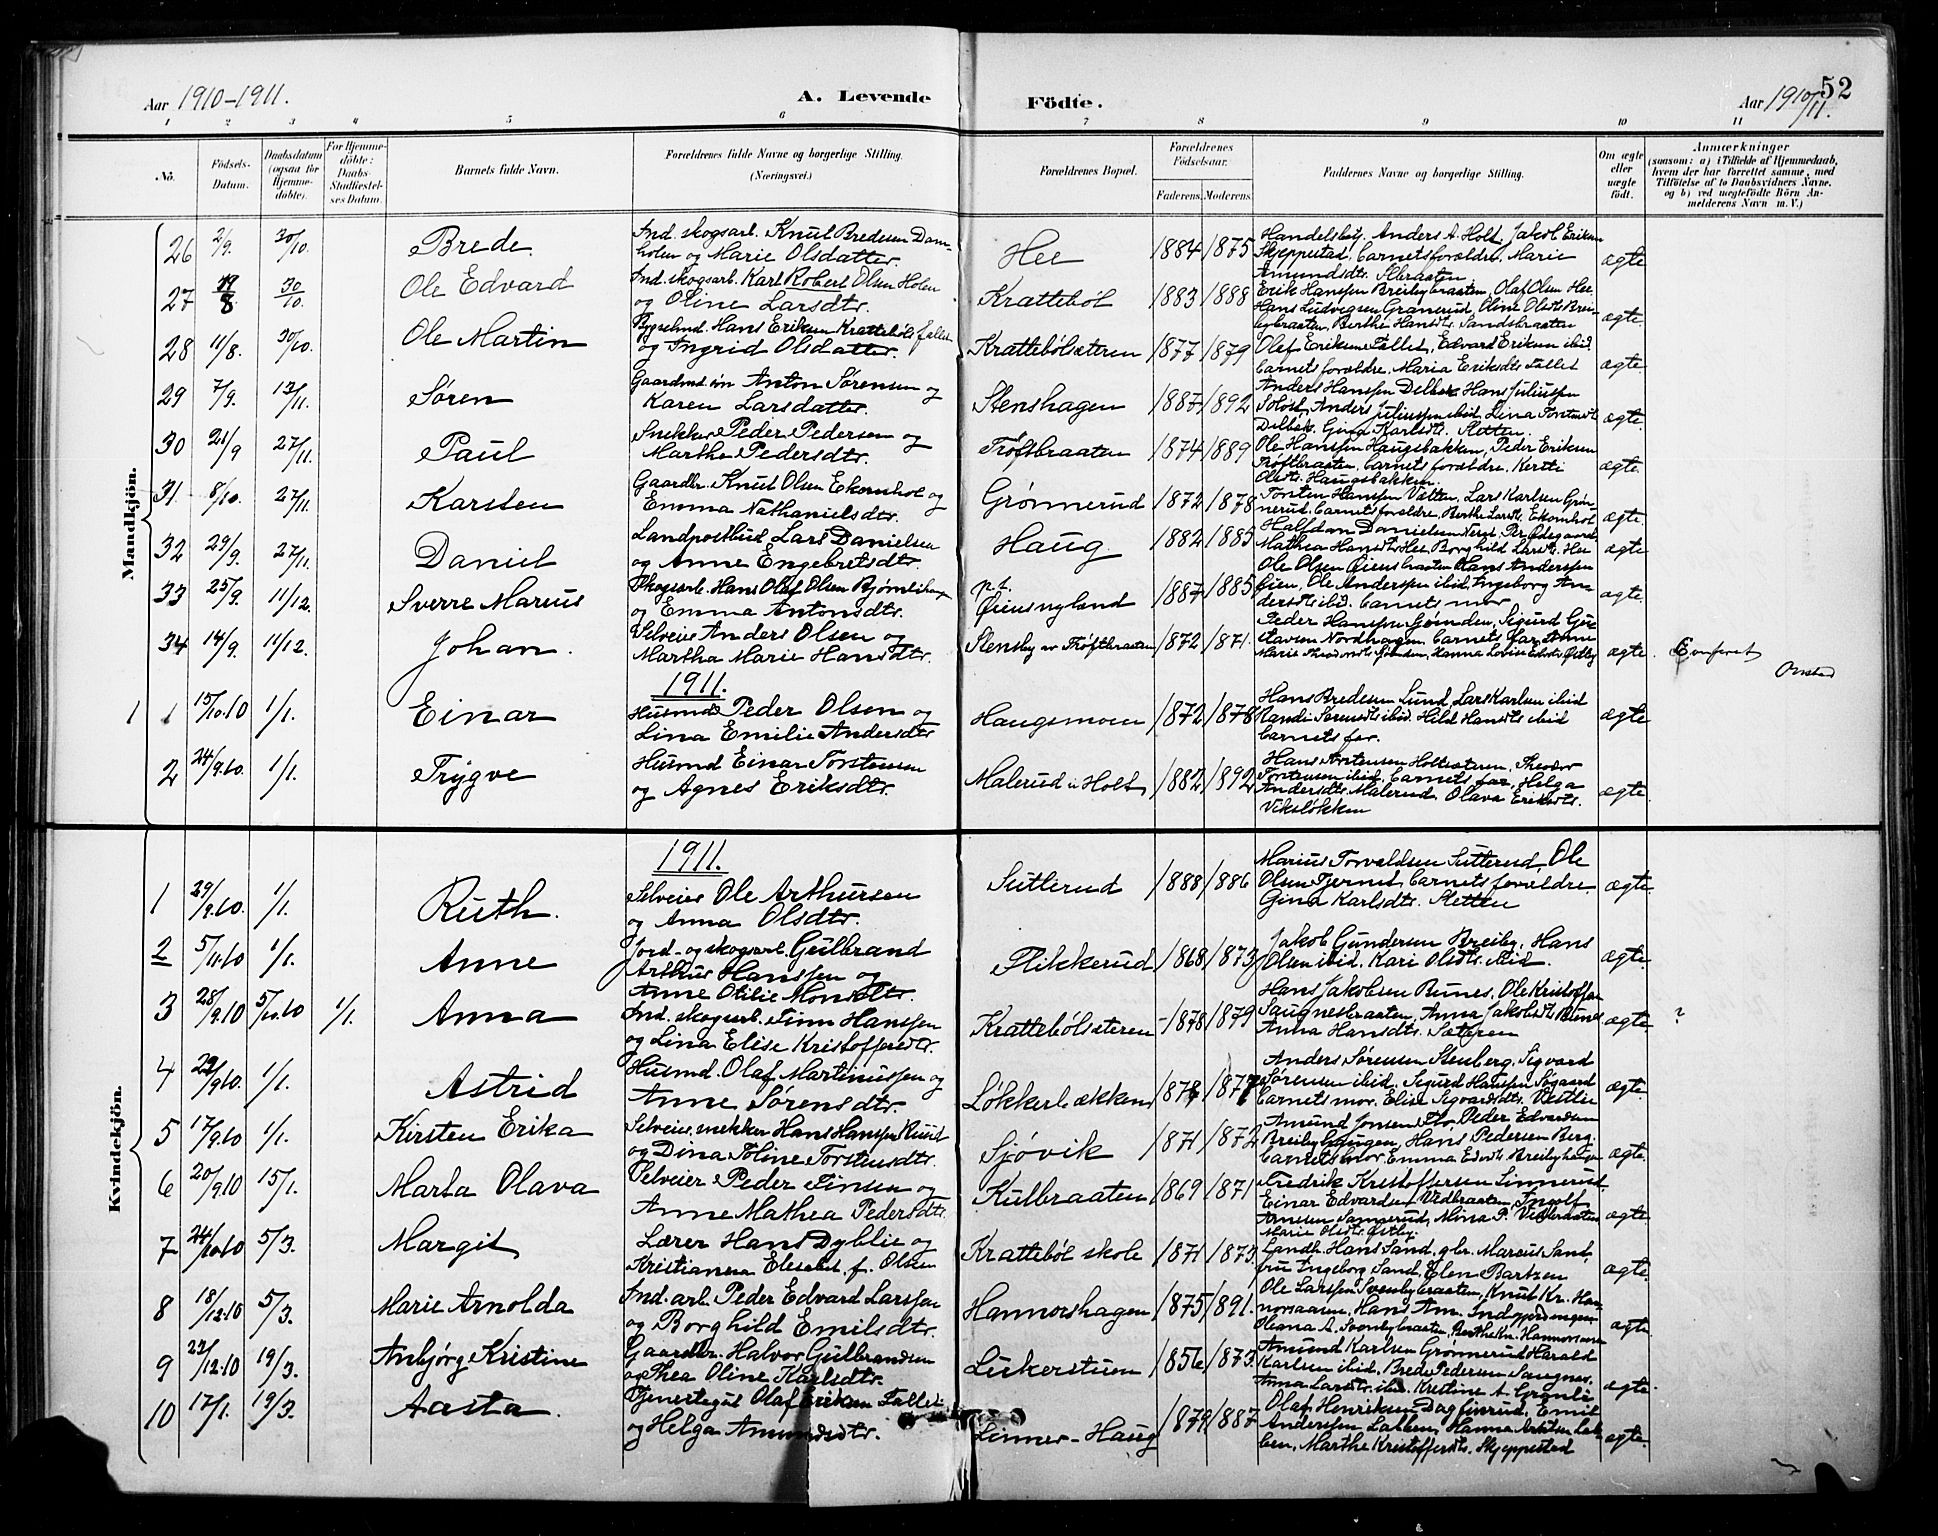 Aar 1910-1911.
A. Levende Födte.
Aar 1910/11.
52
1 2 3 4 5 6 7 8 9 10 11
No.
Födsels-Datum.
Daabsdatum (ogsaa for Hjemmedöbte).
For Hjemmedöbte: Daabs-Stadfæstelses Datum.
Barnets fulde Navn.
Forældrenes fulde Navne og borgerlige Stilling. (Næringsvei.)
Forældrenes Bopæl.
Forældrenes Födselsaar.
Faderens. Moderens.
Faddernes Navne og borgerlige Stilling.
Om ægte eller uægte født.
Anmærkninger
(saasom: a) i Tilfælde af Hjemmedaab, hvem der har forrettet samme, med Tilföielse af to Daabsvidners Navne, og b) ved uægtefödte Börn Anmelderens Navn m. V.)
Mandkjön.
26 2/9. 30/10. Brede Ind. skogsarb. Knut Bredesen Damholen og Marie Olsdatter. Hee 1884 1875 Handelsbetj. Anders A. Holt, Jakob Eriksen Skjeppestad, barnets forældre, Marie Amundsdtr. ægte
27 /8 30/10. Ole Edvard Ind. skogsarb. Karl Robert Olsen Holen og Oline Larsdtr. Krattebøl 1883 1888 Erik Hanssen Breibybraaten, Olaf Olsen Hee Hans Ludvigsen Granerud, Oline Olsdtr. Breibybraaten, Berthe Hansdtr. Sandsbraaten ægte.
28 11/8. 30/10. Ole Martin Bygselmd. Hans Eriksen Krattebøls fallet og Ingrid Olsdatter. Krattebølsæteren 1877 1879 Olaf Eriksen Fallet, Edvard Eriksen ibid. barnets forældre. Maria Eriksdtr Fallet ægte.
29 7/9. 13/11. Søren Gaardmd. Anton Sørensen og Karen Larsdatter. Stenshagen 1887 1892 Anders Hanssen Delbæk, Hans Juliussen Anders Juliussen ibid, Lina Delbæk, Gina Karlsdtr. Sletten. ægte.
30 21/9 27/11. Paul Snekker Peder Pedersen og Martha Pedersdtr. Trøftbraaten 1874 1889 Ole Hanssen Haugsbakken, Peder Eriksen Trøftbraaten, barnets forældre, Kersti Olsdtr. Haugsbakken. ægte.
31. 8/10. 27/11. Karsten Gaardbr. Knut Olsen Ekornhol og Emma Nathanielsdtr. Grønnerud 1872 1878 Torsten Hanssen Vætten, Lars Karlsen Grønnerud, barnets forældre, Berthe Larsdtr. Ekornhol ægte.
32 29/9. 27/11. Daniel Landpostbud Lars Danielsen og Anne Engebretsdtr. Haug 1882 1885 Halfdan Danielsen Mathea Hansdtr. Hee, Borghild Larsdtr. Hee ægte
33 25/9. 11/12. Sverre Marius Skogsarb. Hans Olaf Olsen og Emma Antonsdtr. p.t. Øiensnyland 1887 1885 Ole Olsen Øiensbraaten Hans Anderssen Øien, Ole Anderssen ibid, Ingeborg Andersdtr ibid. barnets mor ægte.
34 14/9. 11/12. Johan. Selveier Anders Olsen og Martha Marie Hansdtr. Stensby av Trøftbraaten 1872 1871. Peder Hanssen Sigurd Gustavsen Nordhagen, barnets far, Anne Marie Hanna Lovise ægte. Onstad
1911.
1 1 15/10.10 1/1. Einar Husmd. Peder Olsen og Lina Emilie Andersdtr Haugsmoen 1872 1878 Hans Bredesen Lund, Lars Karlsen ibid Randi Sørensdtr ibid. Hild Hansdtr ibid barnets far. ægte
2 24/9.10. 1/1. Trygve Husmd Einar Torstensen og Agnes Eriksdtr. Malerud u. Holt 1882 1892 Hans Torstensen Holtsæteren, Theodor Torstensen ibid, barnets far, Helga Andersdtr. Malerud, Olava Eriksdtr. Vikslökken ægte.
Kvindekjön.
1911.
1 29/9.10. 1/1. Ruth. Selveier Ole Arthursen og Anna Olsdtr. Sutterud 1888 1886 Marius Torvaldsen Sutterud, Ole Olsen Tjernet, barnets forældre, Gina Karlsdtr. Sletten ægte
2 5/11.10 1/1. Anne Jord- og skogsarb. Gulbrand Arthur Hanssen og Anne Otilie Monsdtr. Flikkerud 1868 1873 Jakob Gundersen Breiby, Hans Olsen ibid, Kari Olsdtr. ibid. ægte
3 28/9.10 5/10.10 1/1. Anna Ind. skogsarb. Finn Hanssen og Lina Elise Kristoffersdtr. Krattebølsæteren 1878 1879 Hans Jakobsen Bunes, Ole Kristoffersen Saugnesbraaten, Anna Jakobsdtr. Bunes Anna Hansdtr. Sæteren ægte ?
4 /9.10. 1/1. Astrid Husmd. Olaf Martinussen og Anne Sørensdtr. Løkkerbækken 187 1877 Anders Sørensen Stenberg, Sigvard Sørensen ibid. Sigurd Hanssen Søgaard barnets mor. Elise Sigvardsdtr. Væstlie ægte
5 17/9.10 1/1. Kirsten Erika Selveier, snekker Hans Hanssen Ruud og Dina Oline Torstensdtr. Sjøvik 1871 1872 Amund Jonsen Peder Edvardsen Breibyhaugen, Hans Pedersen Berg. barnets mor, Emma Edvdtr. Breibyhaugen ægte.
6 20/9.10 15/1. Marta Olava Selveier Peder Finsen og Anne Mathea Pedersdtr. Kulbraaten 1869 1871 Fredrik Kristoffersen Linnerud, Einar Edvardsen Vidbraaten, Ingolf Arnesen Sannerud, Mina P. Vidbraaten Marie Olsdtr. Østby. ægte
7 24/10.10 5/3. Margit Lærer Hans Dyblie og Kristianna Elesabet f. Olsen Krattebøl skole 1871 1873. Landh. Hans Sand, gbr. Marcus Sand, fru Ingeborg Sand, Elen Bartzen ægte
8 18/12.10 5/3. Marie Arnolda Ind. arb. Peder Edvard Larssen og Borghild Emilsdtr. Hannorshagen 1875 1891. Ole Larssen Svenbybraaten, Knut Kr. Hannorsaaren, Hans Am. Oleana A. Svenbybraaten, Berthe Kn. Hannorsaaren ægte
9 22/12.10 19/3. Anbjørg Kristine Gaardbr. Halvor Gulbrandsen og Thea Oline Karlsdtr. Lukerstuen 1856 1873. Amund Karlsen Grønnerud, Harald Karlsen ibid, Brede Pedersen Saugnes, Anna Larsdtr. ibid. Kristine A. Granli ægte.
10 17/1. 19/3. Aasta. Tjenestegut Olaf Eriksen Fallet og Helga Amundsdtr. Linner-Haug 1879 1887 Olaf Henriksen Dagfinrud, Emil Anderssen Løkken, Hanna Løkken, Marthe Kristoffersdtr. Skjeppestad ægte.